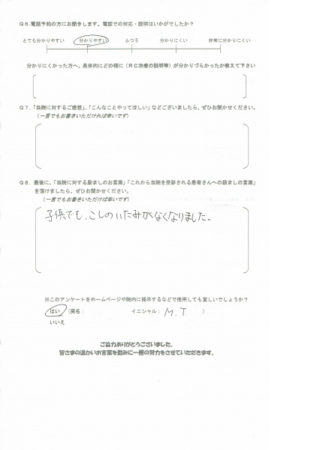 Q6.電話予約の方にお聞きします。電話での対応・説明はいかがでしたか？
とても分かりやすい 分かりやすい ふつう 分かりにくい 非常に分かりにくい
分かりにくかった方へ、具体的にどの様に（外に治療の説明等）が分かりづらかったか教えて下さい
Q7.「当院に対するご感想」、「こんなことやって欲しい」などございましたら、ぜひお聞かせください。
（一言でもお書きいただければ幸いです）
Q8. 最後に、「当院に対する励ましのお言葉」「これから当院を受診される患者さんへの励ましの言葉」
を頂けましたら、ぜひお聞かせください。
（一言でもお書きいただければ幸いです）
子供でも、こしのいたみがなくなりました。
※このアンケートをホームページや院内に掲示するなどで使用しても宜しいでしょうか？
はい （匿名： イニシャル： M.T ）
いいえ
ご協力ありがとうございました。
皆さまの温かいお言葉を励みに一層の努力をさせていただきます。